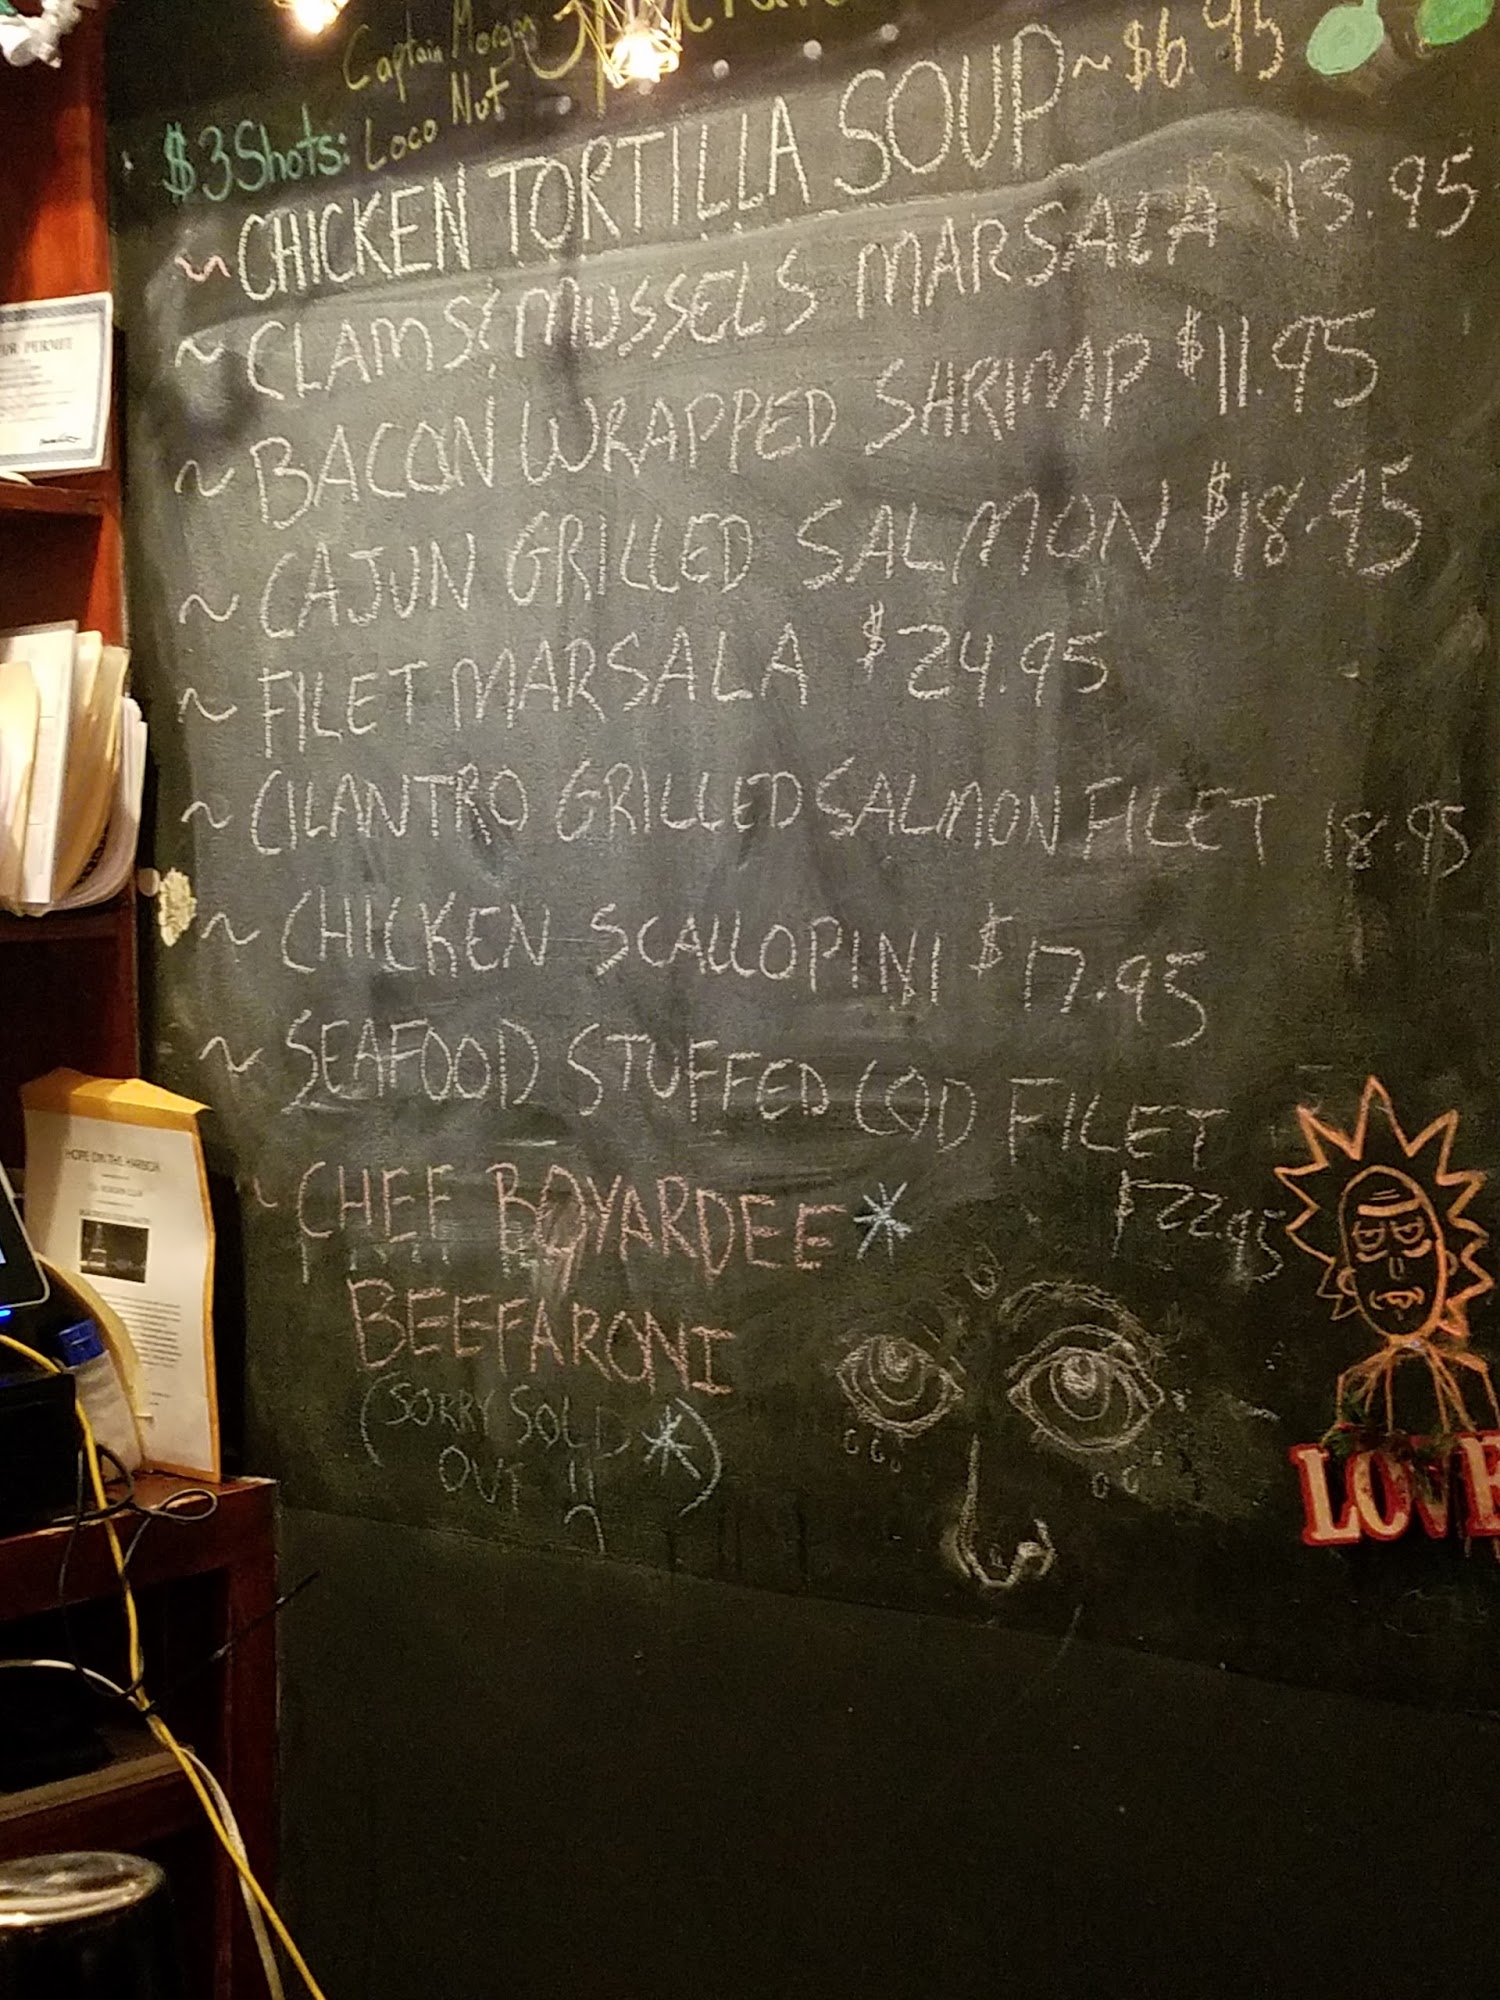 Captain Morgan
Loco Nut
$3 Shots:
~ CHICKEN TORTILLA SOUP ~ $6.95
~ CLAMS & MUSSELS MARSALA 13.95
~ BACON WRAPPED SHRIMP $11.95
~ CAJUN GRILLED SALMON $18.95
~ FILET MARSALA $24.95
~ CILANTRO GRILLED SALMON FILET 18.95
~ CHICKEN SCALLOPINI $17.95
~ SEAFOOD STUFFED COD FILET
$22.95
~ CHEF BOYARDEE *
BEEFARONI
(SORRY SOLD *)
OUT !!
LOVE
PERMIT
HOPE ON THE HARBOR